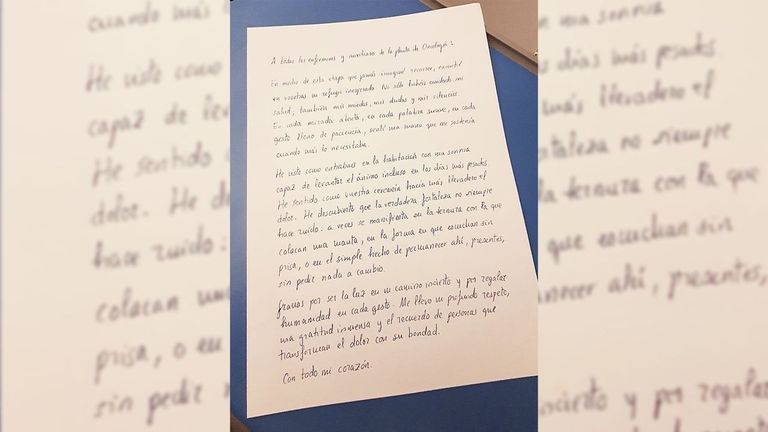 A todos los enfermeras y auxiliares de la planta de Oncología:
En medio de esta etapa que jamás imaginé recorrer, encontré
en vosotras un refugio inesperado. No solo habéis cuidado mi
salud, también mis miedos, mis dudas y mis silencios.
En cada mirada atenta, en cada palabra suave, en cada
gesto lleno de paciencia, sentí una mano que me sostenía
cuando más lo necesitaba.
He visto como entrabais en la habitación con una sonrisa
capaz de levantar el ánimo incluso en los días más pesados.
He sentido como vuestra cercanía hacía más llevadero el
dolor. He descubierto que la verdadera fortaleza no siempre
hace ruido: a veces se manifiesta en la ternura con la que
colocan una manta, en la forma en que escuchan sin
prisa, o en el simple hecho de permanecer ahí, presentes,
sin pedir nada a cambio.
Gracias por ser la luz en un camino incierto y por regalar
humanidad en cada gesto. Me llevo un profundo respeto,
una gratitud inmensa y el recuerdo de personas que
transforman el dolor con su bondad.
Con todo mi corazón.